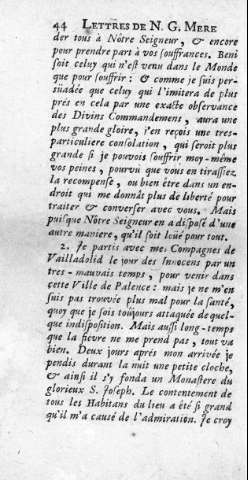 44 LETTRES DE N. G. MERE
der tous à Nôtre Seigneur, & encore
pour prendre part à vos souffrances. Beni
soit celuy qui n'est venu dans le Monde
que pour souffrir : & comme je suis per-
süadée que celuy qui l'imitera de plus
prés en cela par une exacte observance
des Divins Commandemens, aura une
plus grande gloire, j'en reçois une tres-
particuliere consolation, qui seroit plus
grande si je pouvois souffrir moy-même
vos peines, pourvû que vous en tirassiez
la recompense, ou bien être dans un en-
droit qui me donnât plus de liberté pour
traiter & converser avec vous. Mais
puisque Nôtre Seigneur en a disposé d'une
autre maniere, qu'il soit loüé pour tout.
2. Je partis avec mes Compagnes de
Vailladolid le jour des Innocens par un
tres-mauvais temps, pour venir dans
cette Ville de Palence : mais je ne m'en
suis pas trouvée plus mal pour la santé,
quoy que je sois toûjours attaquée de quel-
que indisposition. Mais aussi long-temps
que la fievre ne me prend pas, tout va
bien. Deux jours aprés mon arrivée je
pendis durant la nuit une petite cloche,
& ainsi il s'y fonda un Monastere du
glorieux S. Joseph. Le contentement de
tous les Habitans du lieu a été si grand
qu'il m'a causé de l'admiration. Je croy